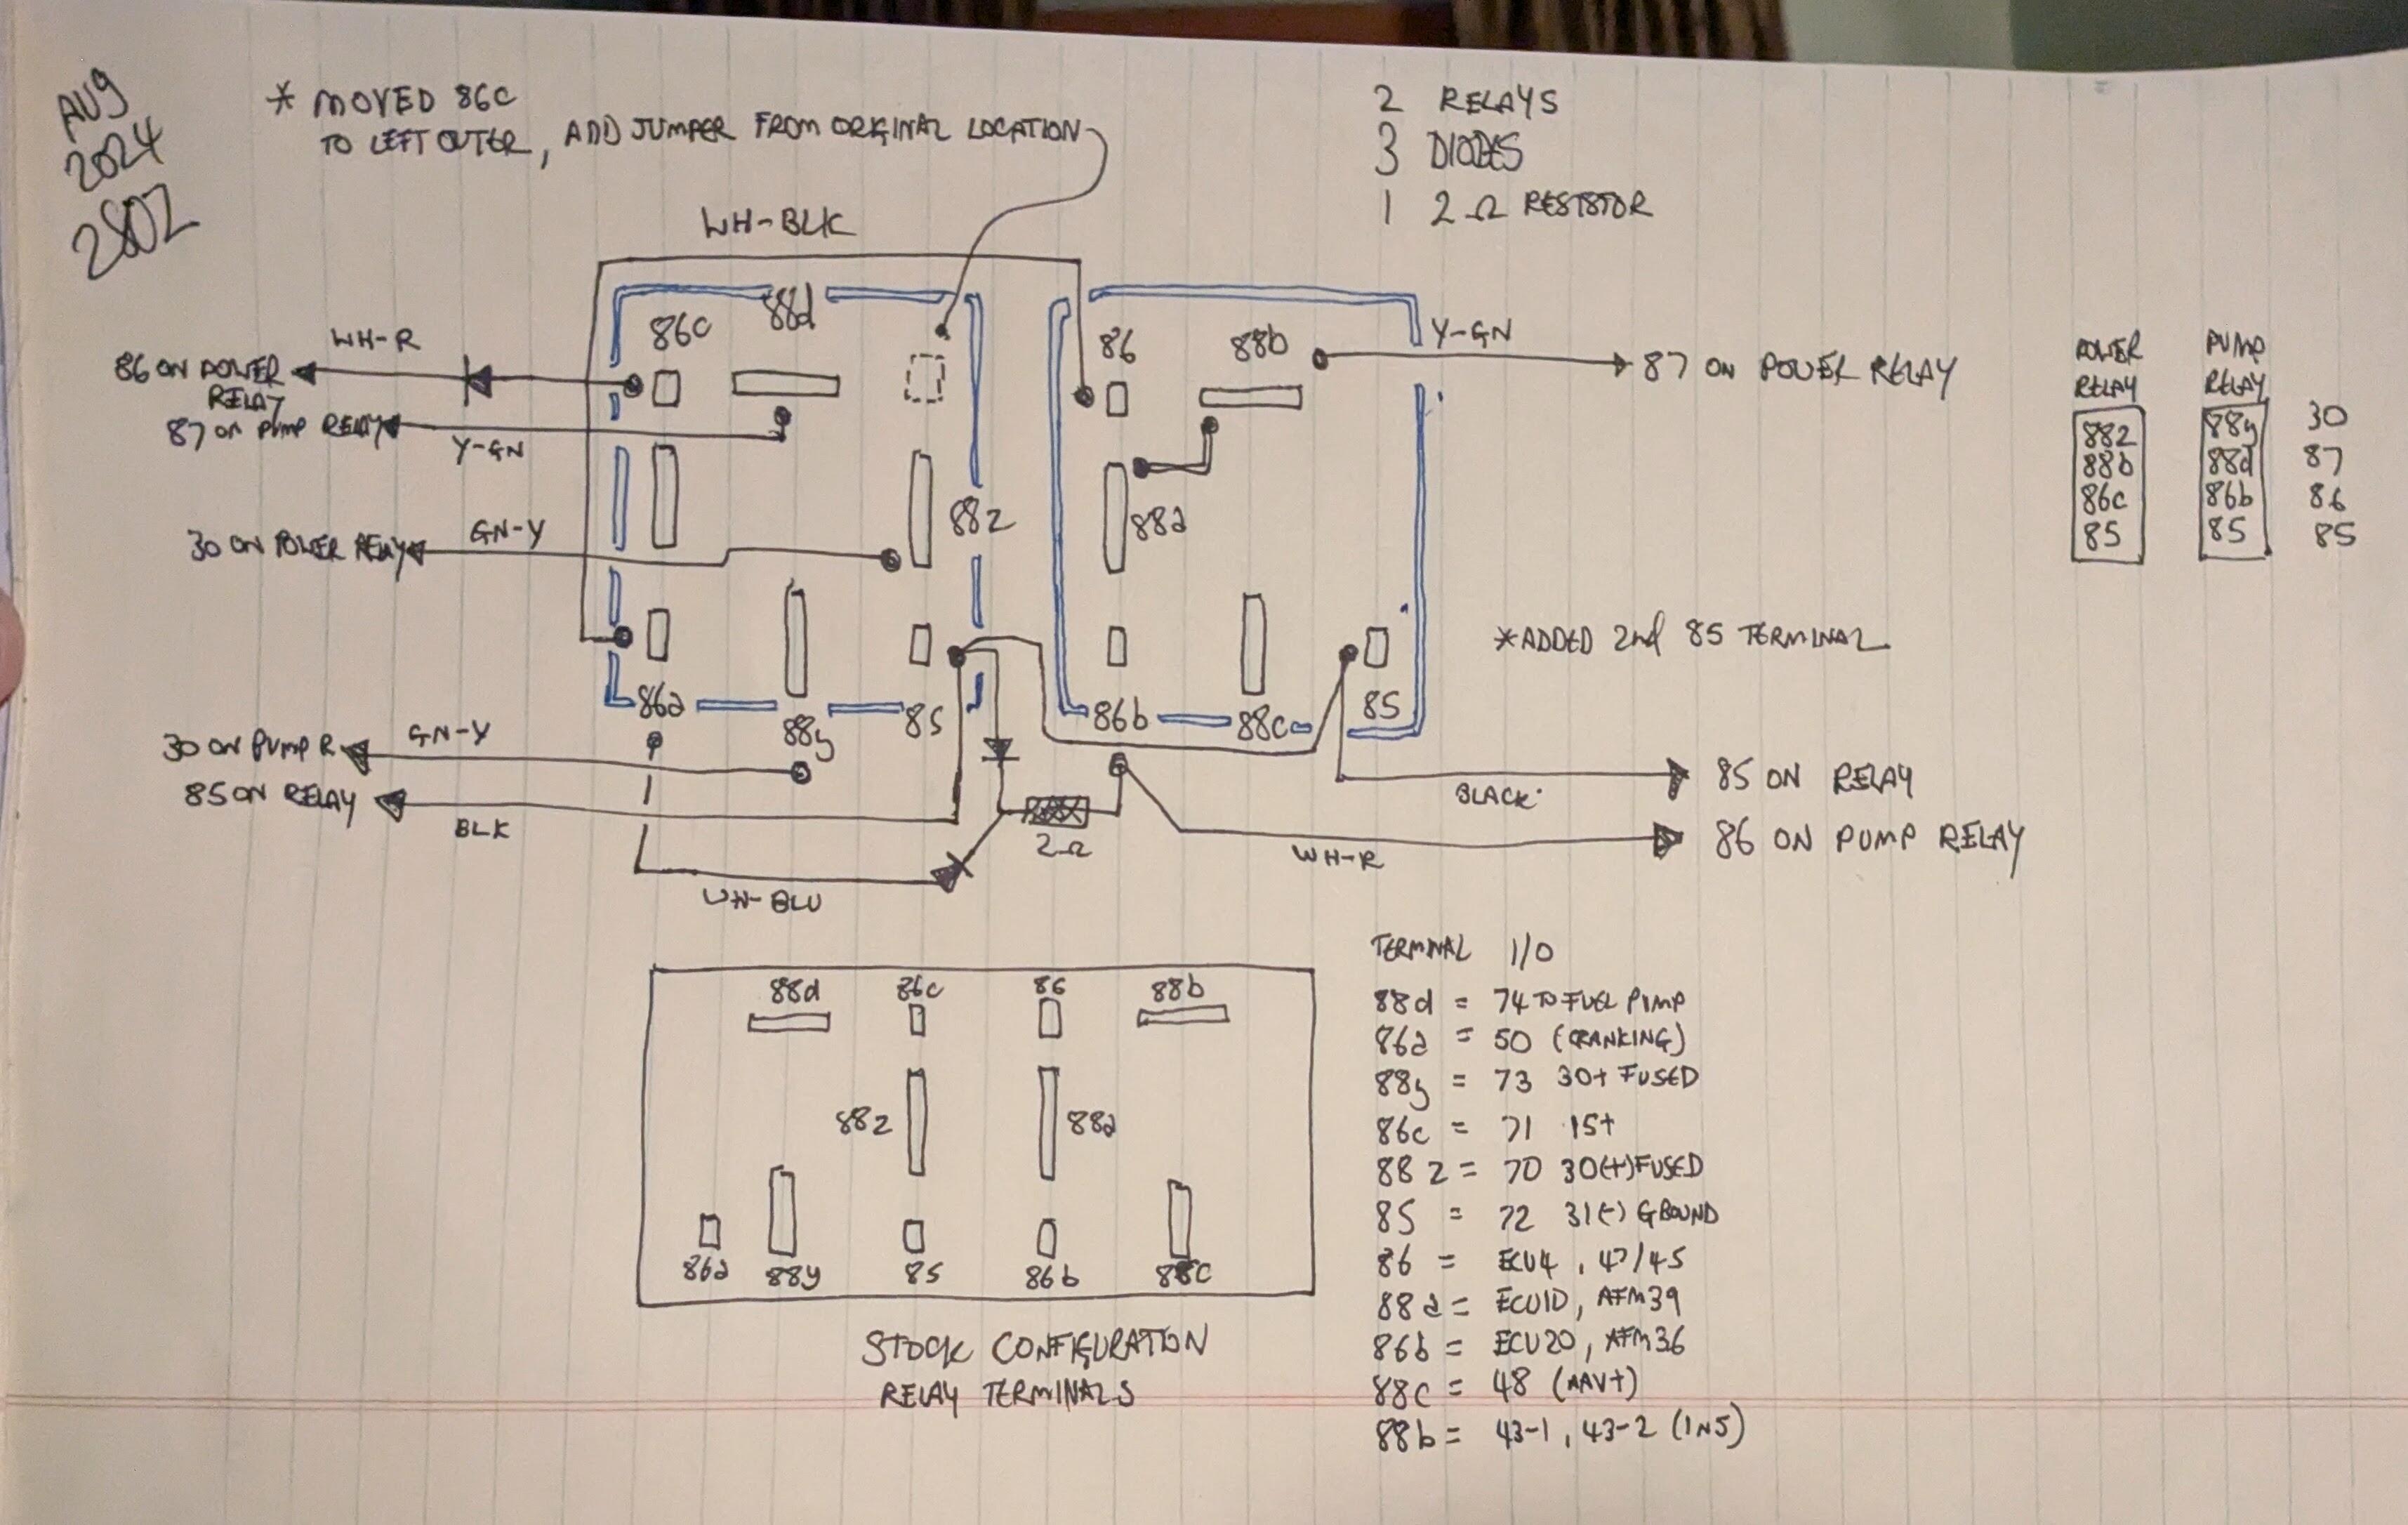 AUG
2024
280Z
* MOVED 86C
TO LEFT OUTER, ADD JUMPER FROM ORIGINAL LOCATION
2 RELAYS
3 DIODES
1 2Ω RESISTOR
WH-BLK
86C
88d
86
88b
Y-GN
87 ON POWER RELAY
WH-R
86 ON POWER
RELAY
87 ON PUMP RELAY
Y-GN
POWER
RELAY
88z
88b
86c
85
PUMP
RELAY
88y
88d
86b
85
30
87
86
85
30 ON POWER RELAY
GN-Y
88z
88a
*ADDED 2nd 85 TERMINAL
86a
88y
85
86b
88c
85
30 ON PUMP R
GN-Y
85 ON RELAY
BLK
2Ω
WH-BLU
BLACK
85 ON RELAY
WH-R
86 ON PUMP RELAY
88d
86c
86
88b
88z
88a
86a
88y
85
86b
88c
STOCK CONFIGURATION
RELAY TERMINALS
TERMINAL I/O
88d = 74 TO FUEL PUMP
86a = 50 (CRANKING)
88y = 73 30+ FUSED
86c = 71 15+
88z = 70 30(+) FUSED
85 = 72 31(-) GROUND
86 = ECU4, 47/45
88a = ECU10, AFM39
86b = ECU20, AFM36
88c = 48 (AAV+)
88b = 43-1, 43-2 (INJ)